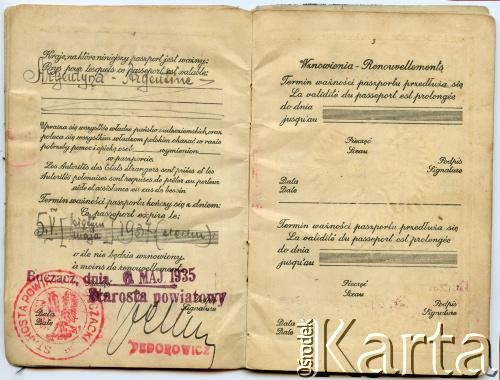 Kraje, na które niniejszy paszport jest ważny:
Pays pour lesquels ce passeport est valable:
Argentyna - Argentine
Uprasza się wszystkie władze państw cudzoziemskich, oraz
poleca się wszystkim władzom polskim okazać w razie
potrzeby pomoc i opiekę osob wymienion
w paszporcie.
Les Autorités des Etats étrangers sont priées et les
Autorités polonaises sont requises de prêter au porteur
aide et assistance en cas de besoin.
Termin ważności paszportu kończy się z dniem:
Ce passeport expire le:
o ile nie będzie wznowiony
à moins de renouvellement
Buczacz, dnia 6 MAJ 1935
Starosta powiatowy
Data
Date
Signature
FEDOROWICZ
STAROSTA POWIATOWY
5
Wznowienia - Renouvellements
Termin ważności paszportu przedłuża się
La validité du passeport est prolongée
do dnia
jusqu'au
Pieczęć
Sceau
Podpis
Signature
Data
Date
Termin ważności paszportu przedłuża się
La validité du passeport est prolongée
do dnia
jusqu'au
Pieczęć
Sceau
Podpis
Signature
Data
Date
Ośrodek
Karta